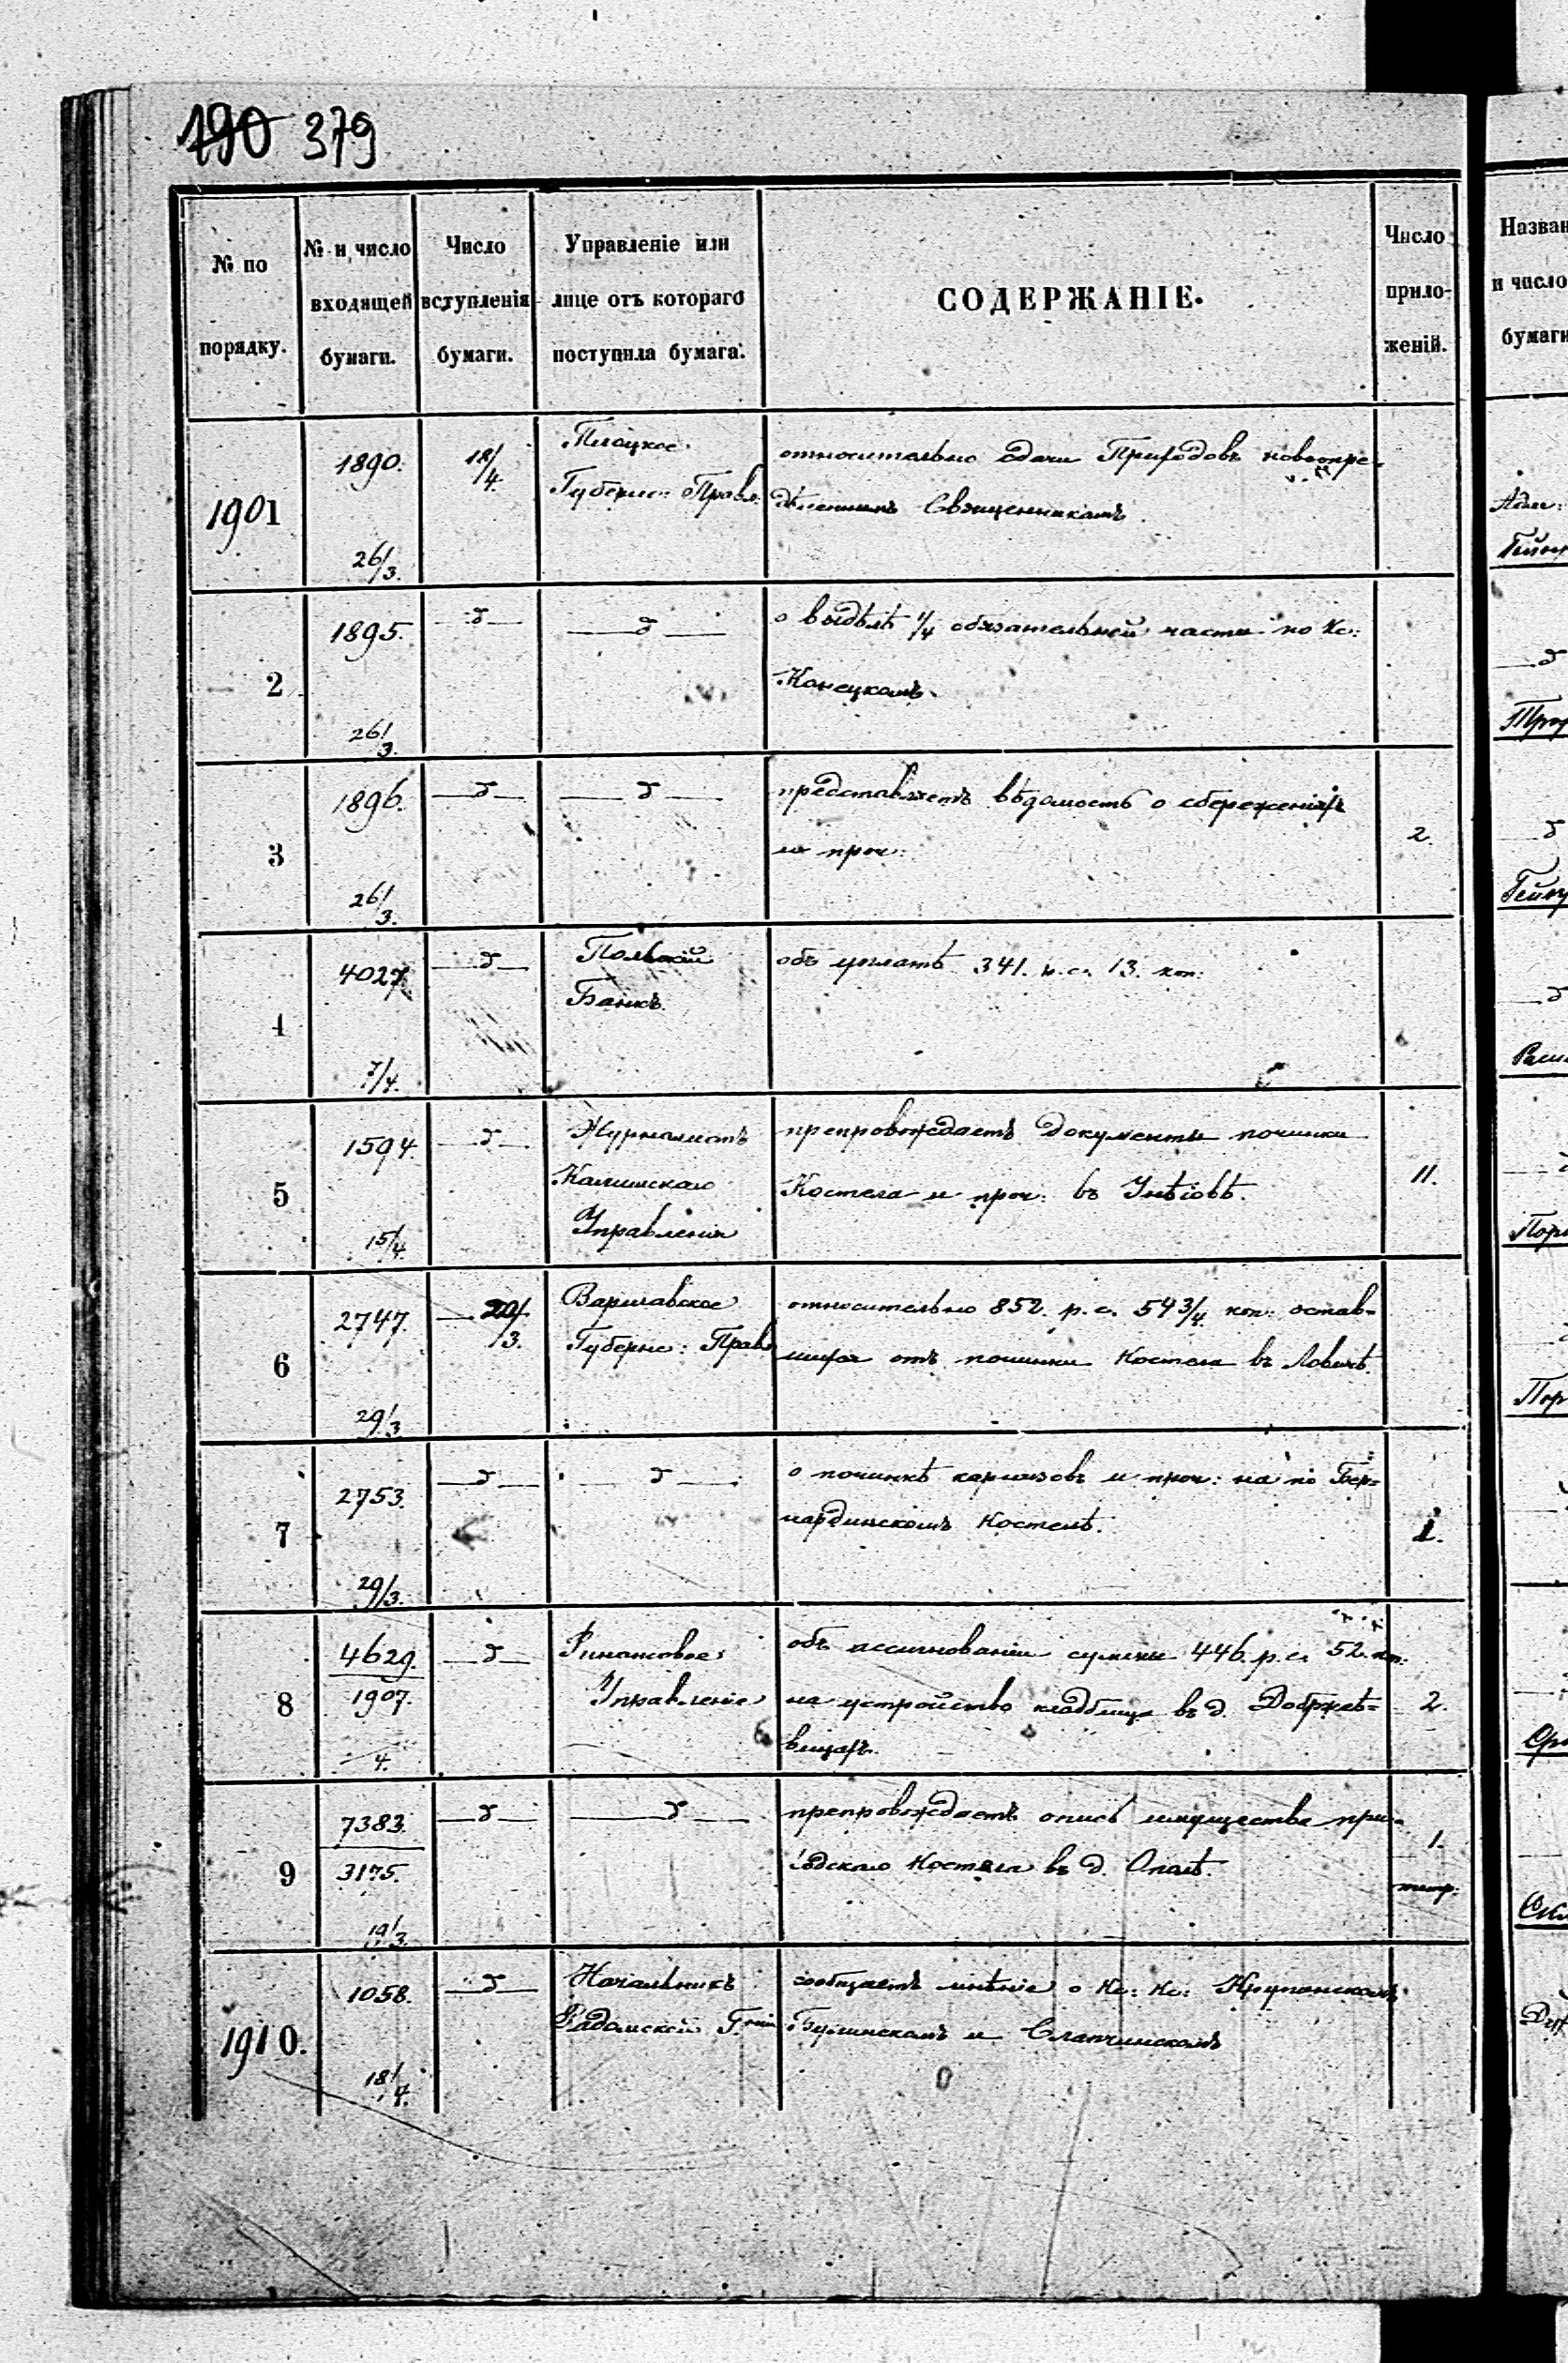 190 379
№ по порядку.
№ и число входящей бумаги.
Число вступленія бумаги.
Управленіе или лице отъ котораго поступила бумага.
СОДЕРЖАНІЕ.
Число приложеній.
1901
1890.
26/3.
18/4.
Плоцкое
Губернс: Правл:
относительно сдачи Приходовъ новоопре-
дѣленнымъ Священникамъ.
2
1895.
26/3.
о выдѣлѣ 1/4 обязательной части по Кс:
Канецкомъ.
3
1896.
26/3.
представляетъ вѣдомость о сбереженіяхъ
и проч:
2.
4
4027.
7/4.
Польскій
Банкъ.
объ уплатѣ 341. р.с. 13. коп:
5
1594.
15/4.
Журналистъ
Калишскаго
Управленія
препровождаетъ документы починки
Костела и проч: въ Унѣіовѣ.
11.
6
2747.
29/3
20/3.
Варшавское
Губернс: Правл
относительно 852. р.с. 54 3/4 коп: остав-
шихся отъ починки Костела въ Ловичѣ.
7
2753.
29/3.
о починкѣ карнизовъ и проч: на по Бер-
нардинскомъ Костелѣ.
1.
8
4629.
1907.
4.
Финансовое
Управленіе
объ ассигнованіи суммы 446. р.с. 52. кп.
на устройство кладбища въ д.
2.
9
7383.
3175.
19/3.
препровождаетъ опись имущества при-
ходскаго Костела въ д. Ополѣ.
1.
1910.
1058.
18/4.
Начальникъ
Радомской Г.ніи
сообщаетъ мнѣніе о Кс: Кс:
и
Назван
и число
бумаги